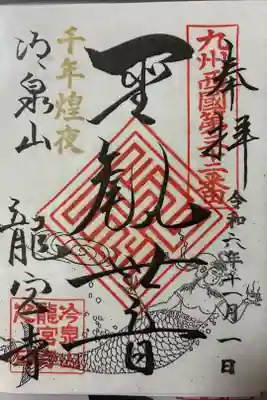 奉拝
九州西國第三十二番
令和六年十一月一日
聖観世音
千年煌夜
冷泉山
龍宮寺
冷泉山
龍宮寺